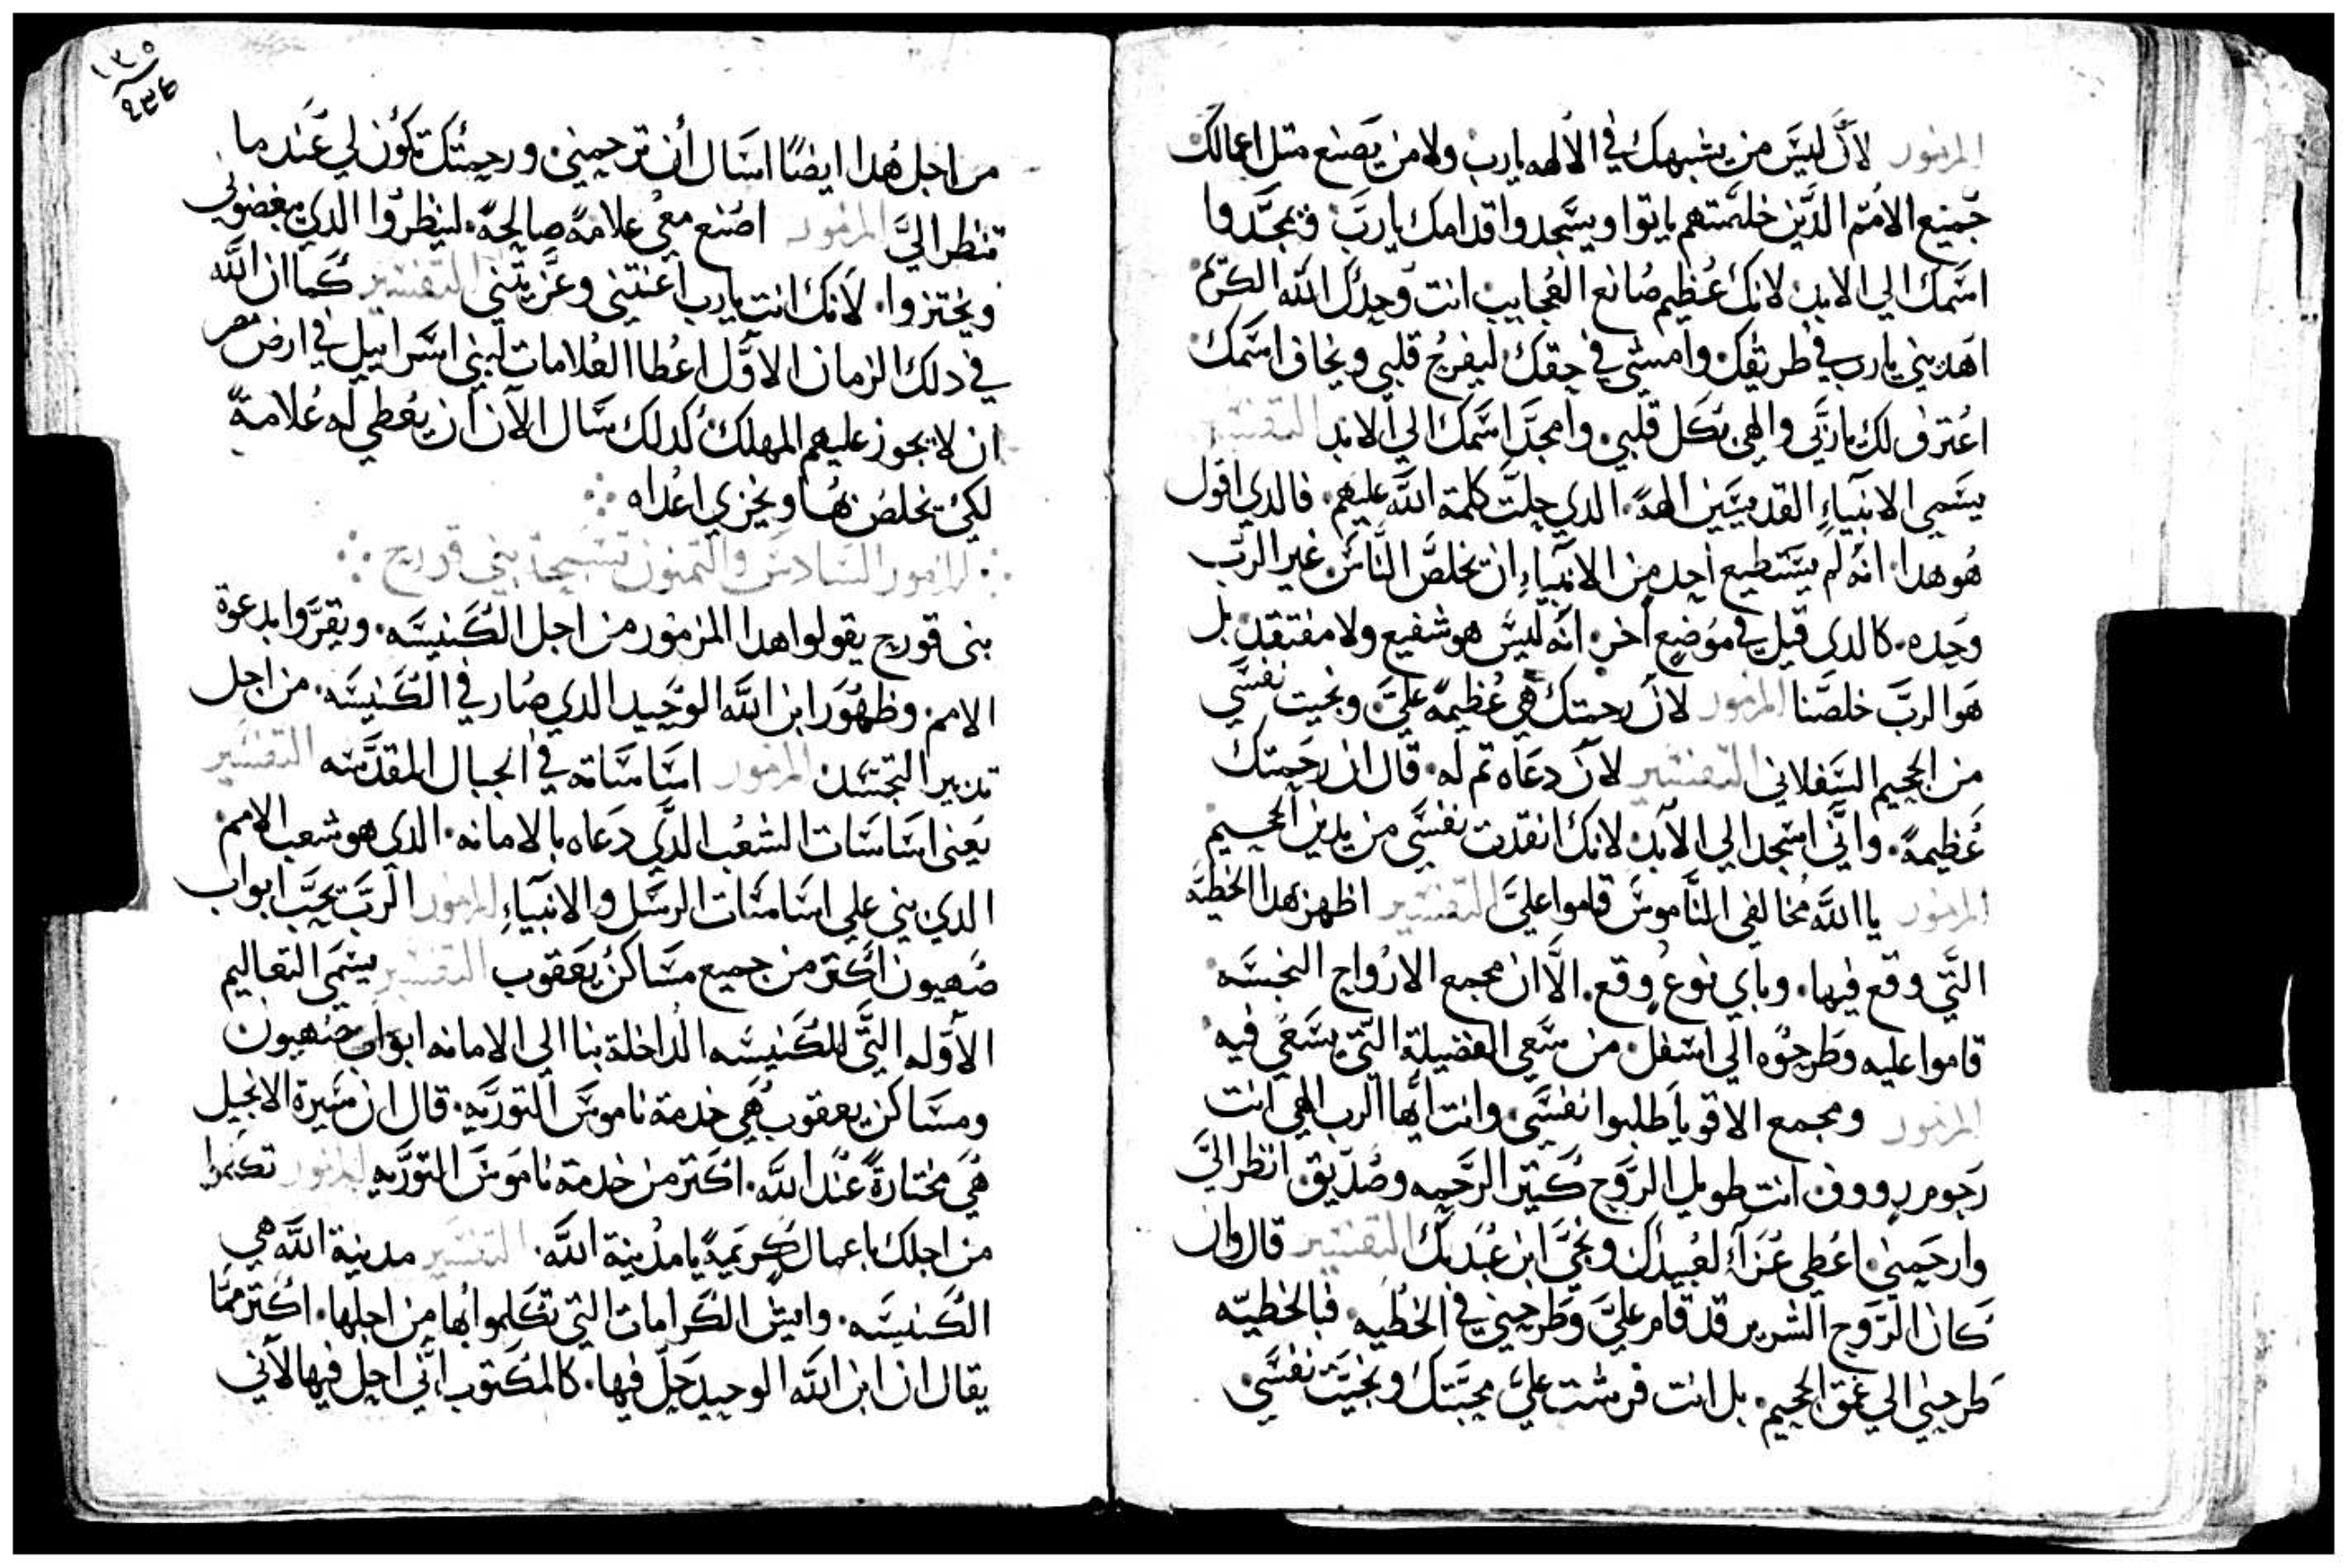 المزمور لأن ليس من يشبهك في الالهه يارب ولا من يصنع متل اعمالك
جميع الامم الدين خلقتهم ياتوا ويسجدوا قدامك يارب ويمجدوا
اسمك الي الابد لانك عظيم صانع العجايب انت وحدك الله الكريم
اهديني يارب في طريقك وامشي في حقك ليفرح قلبي ويخاف اسمك
اعترف لك ياربي والهي بكل قلبي وامجد اسمك الي الابد التفسير
يسمي الانبياء القديسين الهة الدي حلت كلمة الله عليهم فالدي اقول
هو هدا انه لم يستطيع احد من الانبياء ان يخلص الناس غير الرب
وحده كالدي قيل في موضع اخر انه ليس هو شفيع ولا مفتقد بل
هو الرب خلصنا المزمور لان رحمتك هي عظيمة علي ونجيت نفسي
من الجحيم السفلاني التفسير لأن دعاه تم له قال ان رحمتك
عظيمة واني اسجد الي الأبد لانك انقدت نفسي من يدين الجحيم
المزمور يا الله مخالفي الناموس قاموا علي التفسير اظهر هدا الخطيه
التي وقع فيها وباي نوع وقع الا ان مجمع الارواح النجسه
قاموا عليه وطرحوه الي اسفل من سعي الفضيلة التي يسعي فيه
المزمور ومجمع الاقويا طلبوا نفسي وانت ايها الرب الهي انت
رحوم رووف انت طويل الروح كتير الرحمه وصديق انظر الي
وارحمني اعطي عزآء لعبيدك ونجي ابن عبدتك التفسير قال وان
كان الروح الشرير قد قام علي وطرحني في الخطيه فبالخطيه
طرحني الي عمق الجحيم بل انت فرشت علي محبتك ونجيت نفسي
١٣٥
٩٣٤
من اجل هدا ايضًا اسال أن ترحمني ورحمتك تكون لي عندما
تنظر الي المزمور اصنع معي علامة صالحة لينظروا الدي يبغضوني
ويختزوا لانك انت يارب اعنتني وعزيتني التفسير كما ان الله
في دلك الزمان الاول اعطا العلامات لبني اسراييل في ارض مصر
ان لا يجوز عليهم المهلك كدلك سال الآن أن يعطي له علامة
لكي تخلص بها ويخزي اعداه
المزمور السادس والتمنون تسبحة بني قورح
بني قورح يقولوا هدا المزمور من اجل الكنيسه ويقروا بدعوة
الامم وظهور ابن الله الوحيد الدي صار في الكنيسه من اجل
تدبير التجسد المزمور اساساته في الجبال المقدسه التفسير
يعني اساسات الشعب الدي دعاه بالامانه الدي هو شعب الامم
الدي بني علي اساسات الرسل والانبياء المزمور الرب يحب ابواب
صهيون اكتر من جميع مساكن يعقوب التفسير يسمي التعاليم
الأوله التي للكنيسه الداخلة بنا الي الامانه ابواب صهيون
ومساكن يعقوب هي خدمة ناموس التوريه قال ان سيرة الانجيل
هي مختارة عند الله اكتر من خدمة ناموس التوريه المزمور تكلموا
من اجلك باعمال كريمة يا مدينة الله التفسير مدينة الله هي
الكنيسه وايش الكرامات التي تكلموا بها من اجلها اكتر مما
يقال ان ابن الله الوحيد حل فيها كالمكتوب اني احل فيها لأني